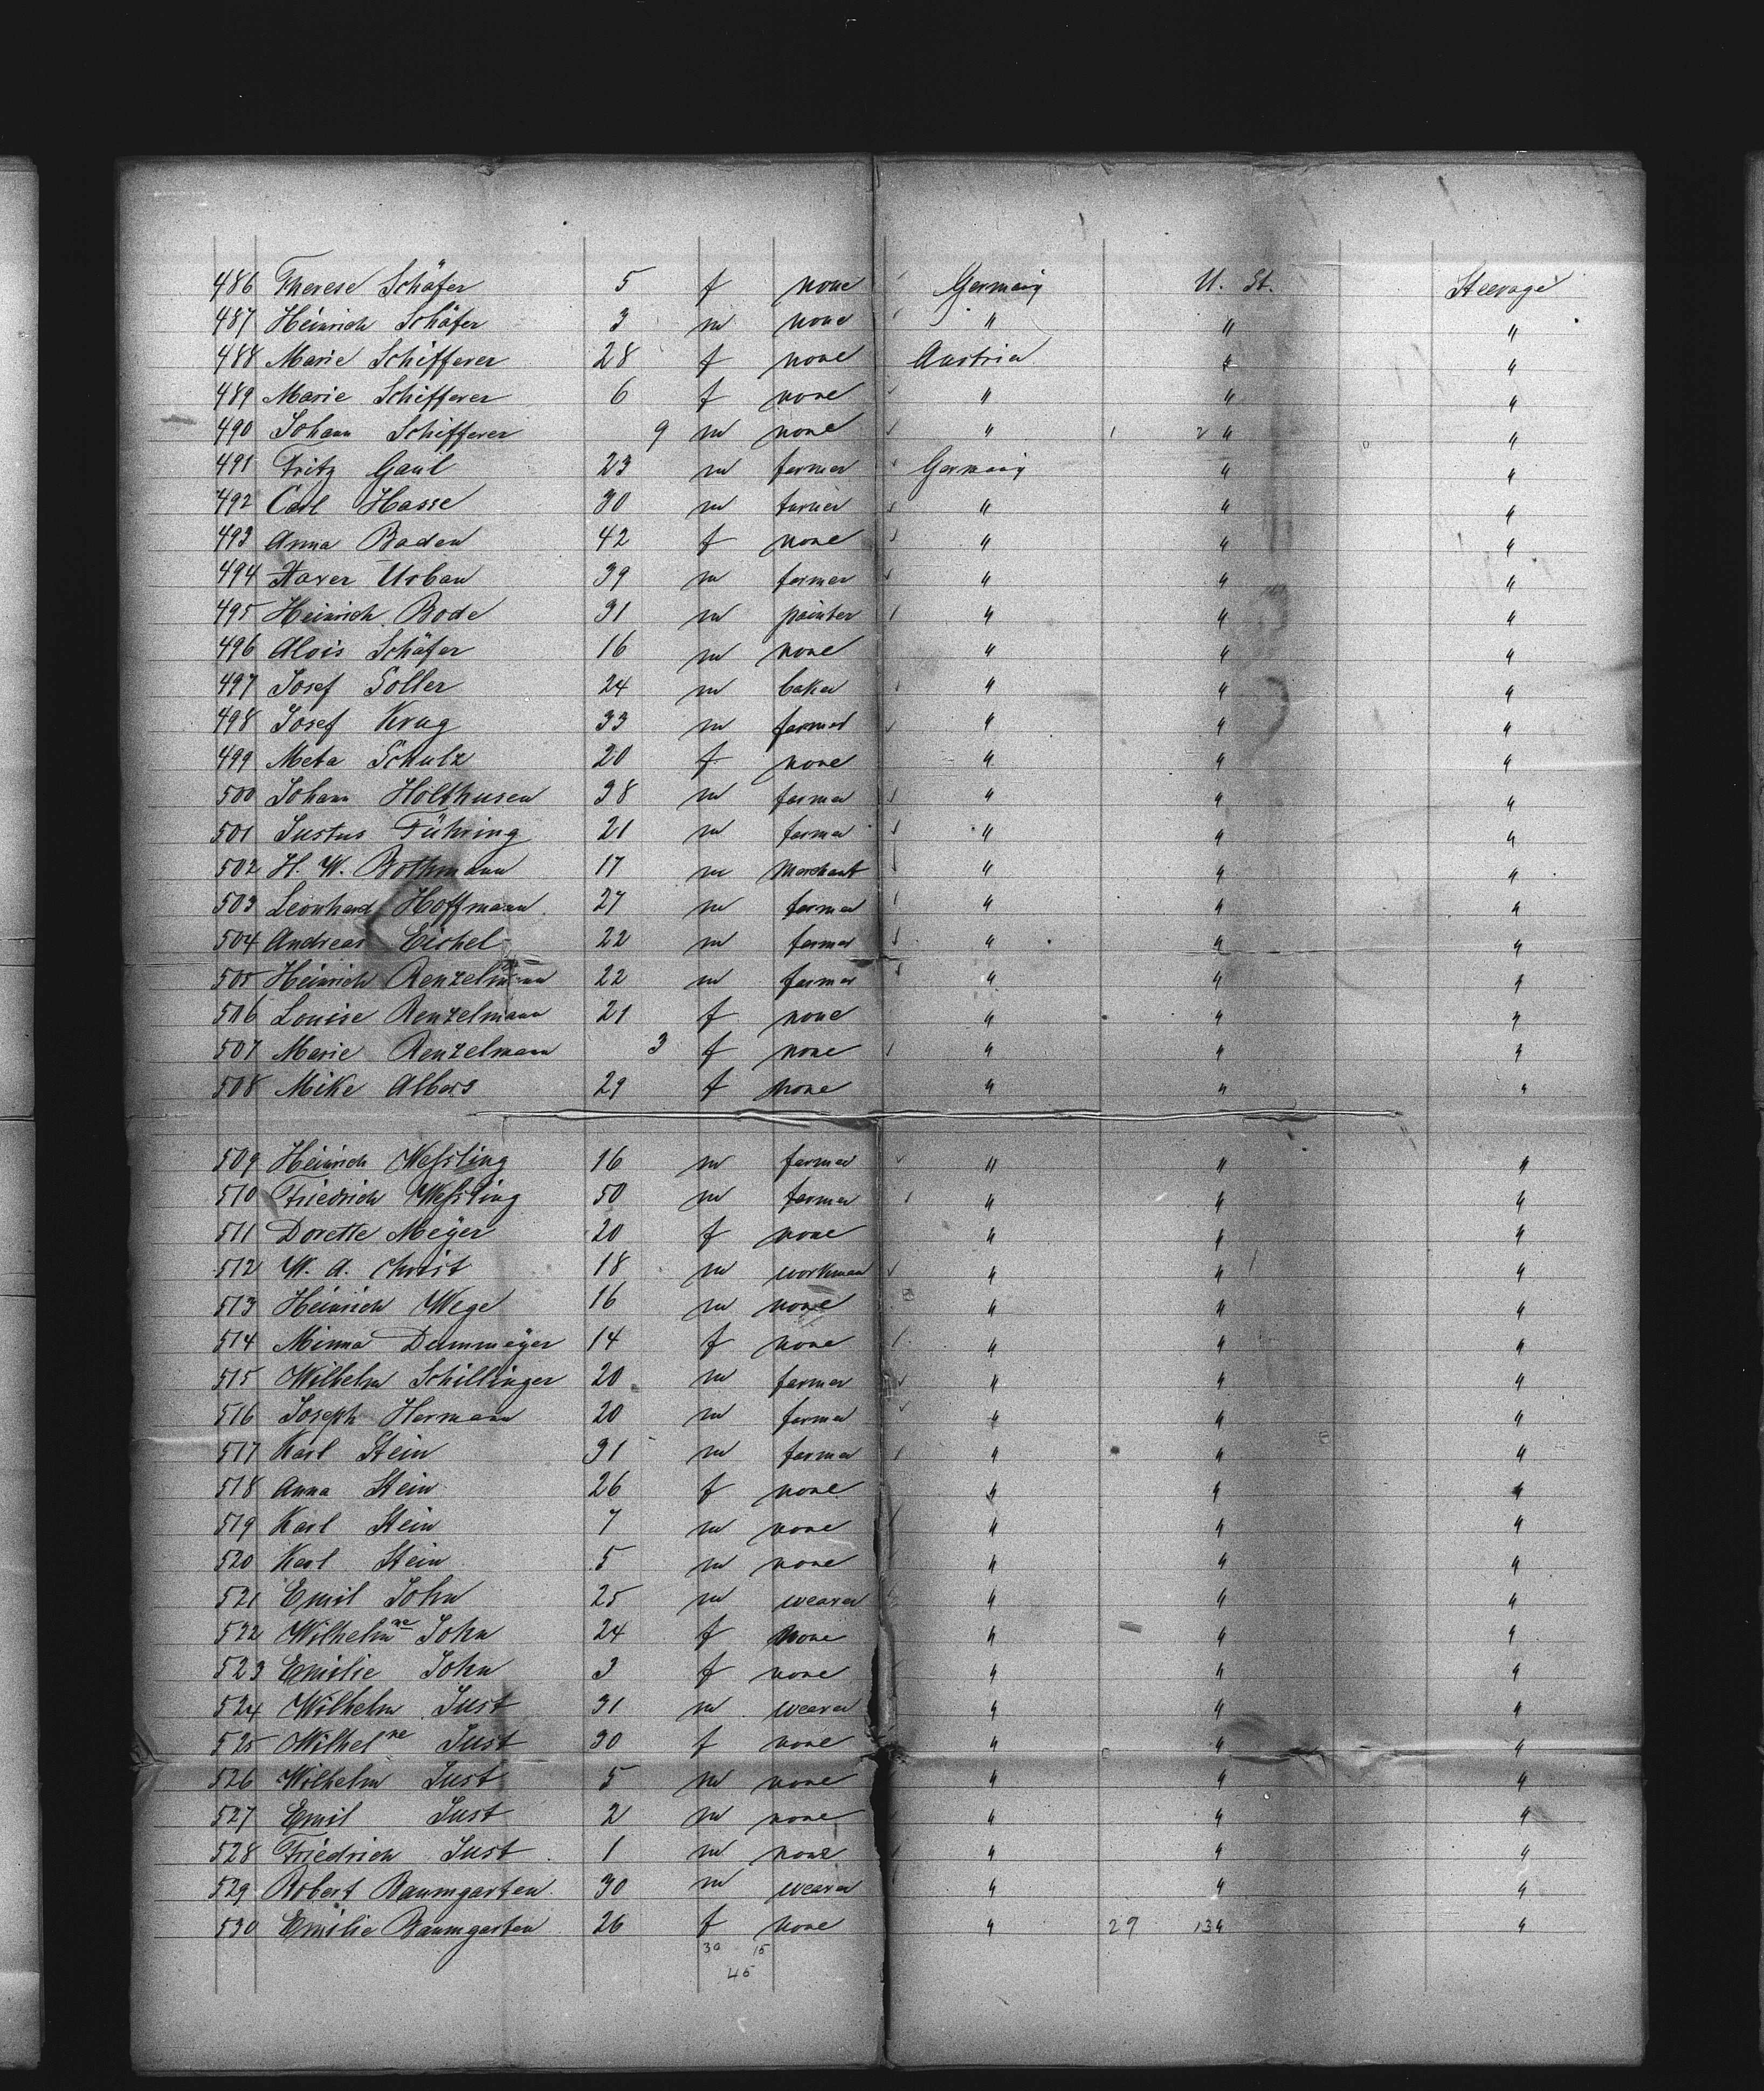 486 Therese Schäfer 5 f none Germany U. St. Steerage
487 Heinrich Schäfer 3 m none " " "
488 Marie Schifferer 28 f none Austria " "
489 Marie Schifferer 6 f none " " "
490 Johann Schifferer 9 m none " 1 2 " "
491 Fritz Gaul 23 m farmer Germany " "
492 Carl Hasse 30 m " " "
493 Anna Baden 42 f none " " "
494 Xaver Urban 39 m farmer " " "
495 Heinrich Bode 31 m painter " " "
496 Alois Schäfer 16 m none " " "
497 Josef Soller 24 m baker " " "
498 Josef Krug 33 m farmer " " "
499 Meta Schulz 20 f none " " "
500 Johann Holthusen 38 m farmer " " "
501 Justus Führing 21 m farmer " " "
502 H. W. Bothmann 17 m Merchant " " "
503 Leonhard Hoffmann 27 m farmer " " "
504 Andreas Eichel 22 m farmer " " "
505 Heinrich Renzelmann 22 m farmer " " "
506 Louise Renzelmann 21 f none " " "
507 Marie Renzelmann 3 f none " " "
508 Mike Albers 29 f none " " "
509 Heinrich Weſsling 16 m farmer " " "
510 Friedrich Weſsling 50 m farmer " " "
511 Dorette Meÿer 20 f none " " "
512 W. A. Christ 18 m workman " " "
513 Heinrich Wege 16 m none " " "
514 Minna Dammeÿer 14 f none " " "
515 Wilhelm Schillinger 20 m farmer " " "
516 Joseph Hermann 20 m farmer " " "
517 Karl Stein 31 m farmer " " "
518 Anna Stein 26 f none " " "
519 Karl Stein 7 m none " " "
520 Karl Stein 5 m none " " "
521 Emil John 25 m weaver " " "
522 Wilhelmne John 24 f none " " "
523 Emilie John 3 f none " " "
524 Wilhelm Just 31 m weaver " " "
525 Wilhelne Just 30 f none " " "
526 Wilhelm Just 5 m none " " "
527 Emil Just 2 m none " " "
528 Friedrich Just 1 m none " " "
529 Robert Baumgarten 30 m weaver " " "
530 Emilie Baumgarten 26 f none " 29 13 " "
30 15
45